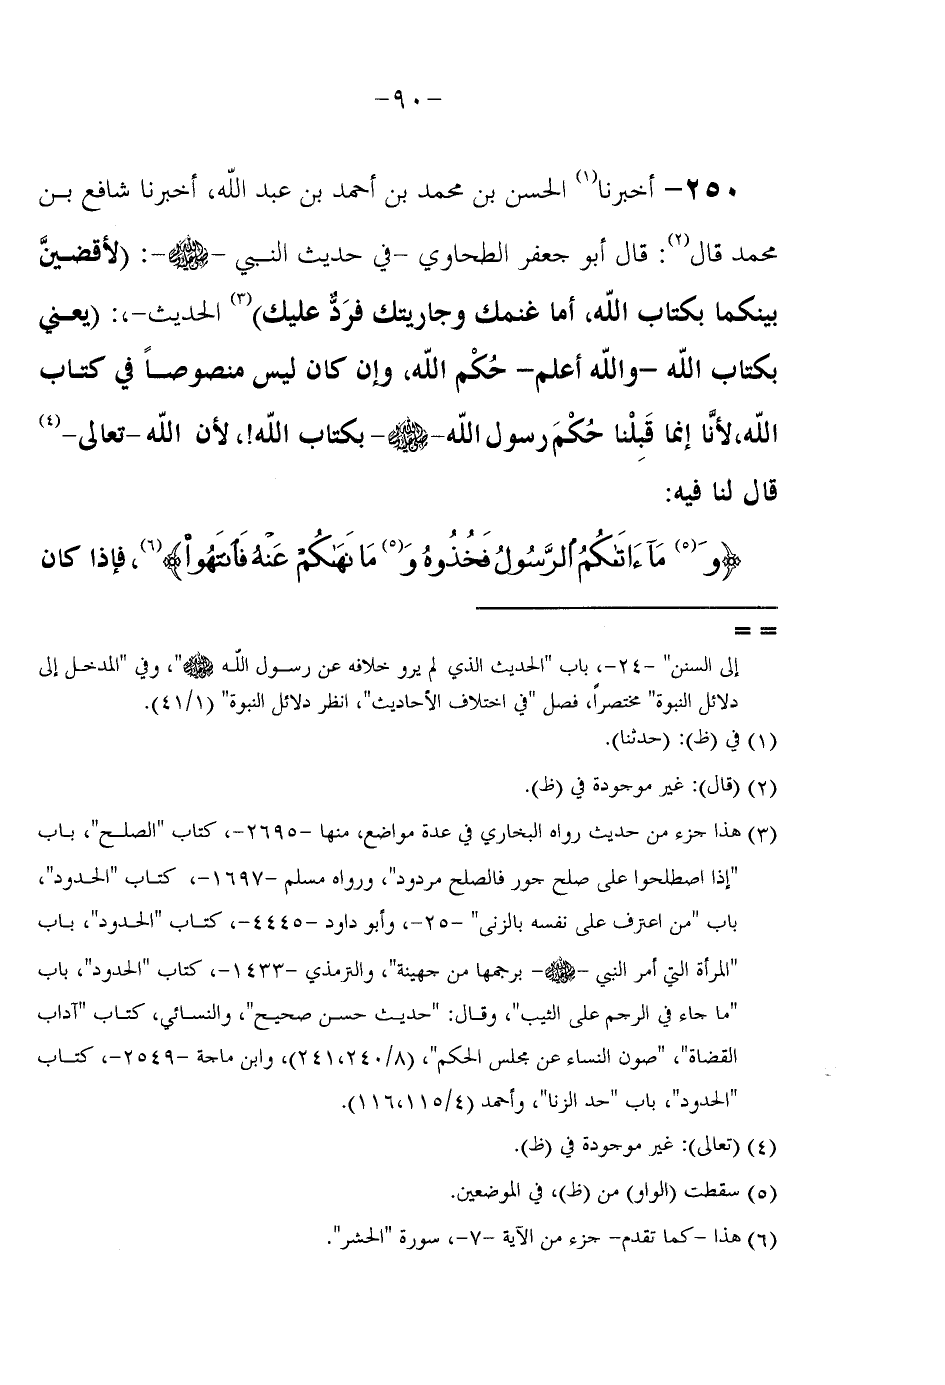 -٩٠-
٢٥٠- أخبرنا(١) الحسن بن محمد بن أحمد بن عبد الله، أخبرنا شافع بن
محمد قال(٢): قال أبو جعفر الطحاوي -في حديث النبي -ﷺ-: (لأقضينَّ
بينكما بكتاب الله، أما غنمك وجاريتك فرَدٌّ عليك)(٣) الحديث-،: (يعني
بكتاب الله -والله أعلم- حُكْم الله، وإن كان ليس منصوصاً في كتاب
الله،لأنَّا إنما قَبِلْنا حُكْمَ رسول الله-ﷺ-بكتاب الله!، لأن الله -تعالى-(٤)
قال لنا فيه:
﴿وَ(٥) مَآ ءَاتَىٰكُمُ ٱلرَّسُولُ فَخُذُوهُ وَ(٥) مَا نَهَىٰكُمْ عَنْهُ فَٱنتَهُواْ﴾(٦)، فإذا كان
= =
إلى السنن" -٢٤-، باب "الحديث الذي لم يرو خلافه عن رسول الله ﷺ"، وفي "المدخل إلى
دلائل النبوة" مختصراً، فصل "في اختلاف الأحاديث"، انظر دلائل النبوة" (٤١/١).
(١) في (ظ): (حدثنا).
(٢) (قال): غير موجودة في (ظ).
(٣) هذا جزء من حديث رواه البخاري في عدة مواضع، منها -٢٦٩٥-، كتاب "الصلح"، باب
"إذا اصطلحوا على صلح جور فالصلح مردود"، ورواه مسلم -١٦٩٧-، كتاب "الحدود"،
باب "من اعترف على نفسه بالزنى" -٢٥-، وأبو داود -٤٤٤٥-، كتاب "الحدود"، باب
"المرأة التي أمر النبي -ﷺ- برجمها من جهينة"، والترمذي -١٤٣٣-، كتاب "الحدود"، باب
"ما جاء في الرجم على الثيب"، وقال: "حديث حسن صحيح"، والنسائي، كتاب "آداب
القضاة"، "صون النساء عن مجلس الحكم"، (٢٤١،٢٤٠/٨)، وابن ماجة -٢٥٤٩-، كتاب
"الحدود"، باب "حد الزنا"، وأحمد (١١٦،١١٥/٤).
(٤) (تعالى): غير موجودة في (ظ).
(٥) سقطت (الواو) من (ظ)، في الموضعين.
(٦) هذا -كما تقدم- جزء من الآية -٧-، سورة "الحشر".